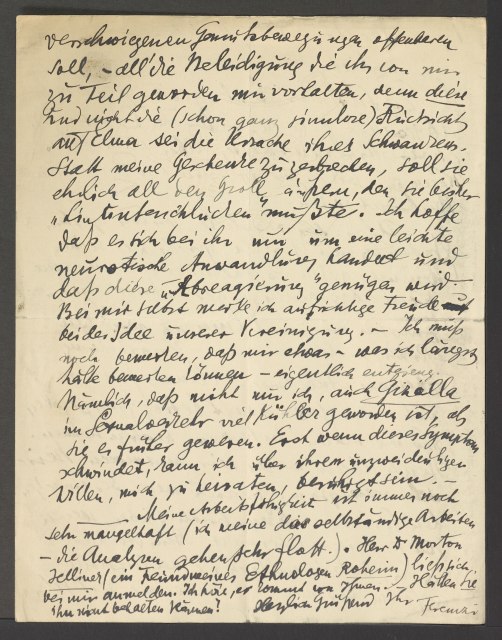 verschwiegenen Gemütsbewegungen offenbaren
soll, – all' die Beleidigung die ihr von mir
zu Teil geworden mir vorhalten, denn diese
und nicht die (schon ganz sinnlose) Rücksicht
auf Elma sei die Ursache ihres Schwankens.
Statt meine Geschenke zu zerbrechen, soll sie
ehrlich all den Groll äußern, den sie bisher
„hinunterschlucken" mußte. Ich hoffe
daß es sich bei ihr nur um eine leichte
neurotische Anwandlung handelt und
daß diese „Abreagierung" genügen wird.
Bei mir selbst merke ich aufrichtige Freude
bei der Idee unserer Vereinigung. – Ich muß
noch bemerken, daß mir etwas – was ich längst
hätte bemerken können – eigentlich entgieng.
Nämlich, daß nicht nur ich, auch Gizella
im Sexualverkehr viel kühler geworden ist, als
sie es früher gewesen. Erst wenn dieses Symptom
schwindet, kann ich über ihren unzweideutigen
Willen, mich zu heiraten, beruhigt sein. –
Meine Arbeitsfähigkeit ist immer noch
sehr mangelhaft (ich meine das selbständige Arbeiten
– die Analysen gehen sehr flott.). Herr Dr Morton
Jellinek (ein Freund meines Ethnologen Roheim) ließ sich
bei mir anmelden. Ich höre, er kommt von Ihnen. – Hätten Sie
ihn nicht behalten können?
Herzlich grüßend Ihr Ferenczi